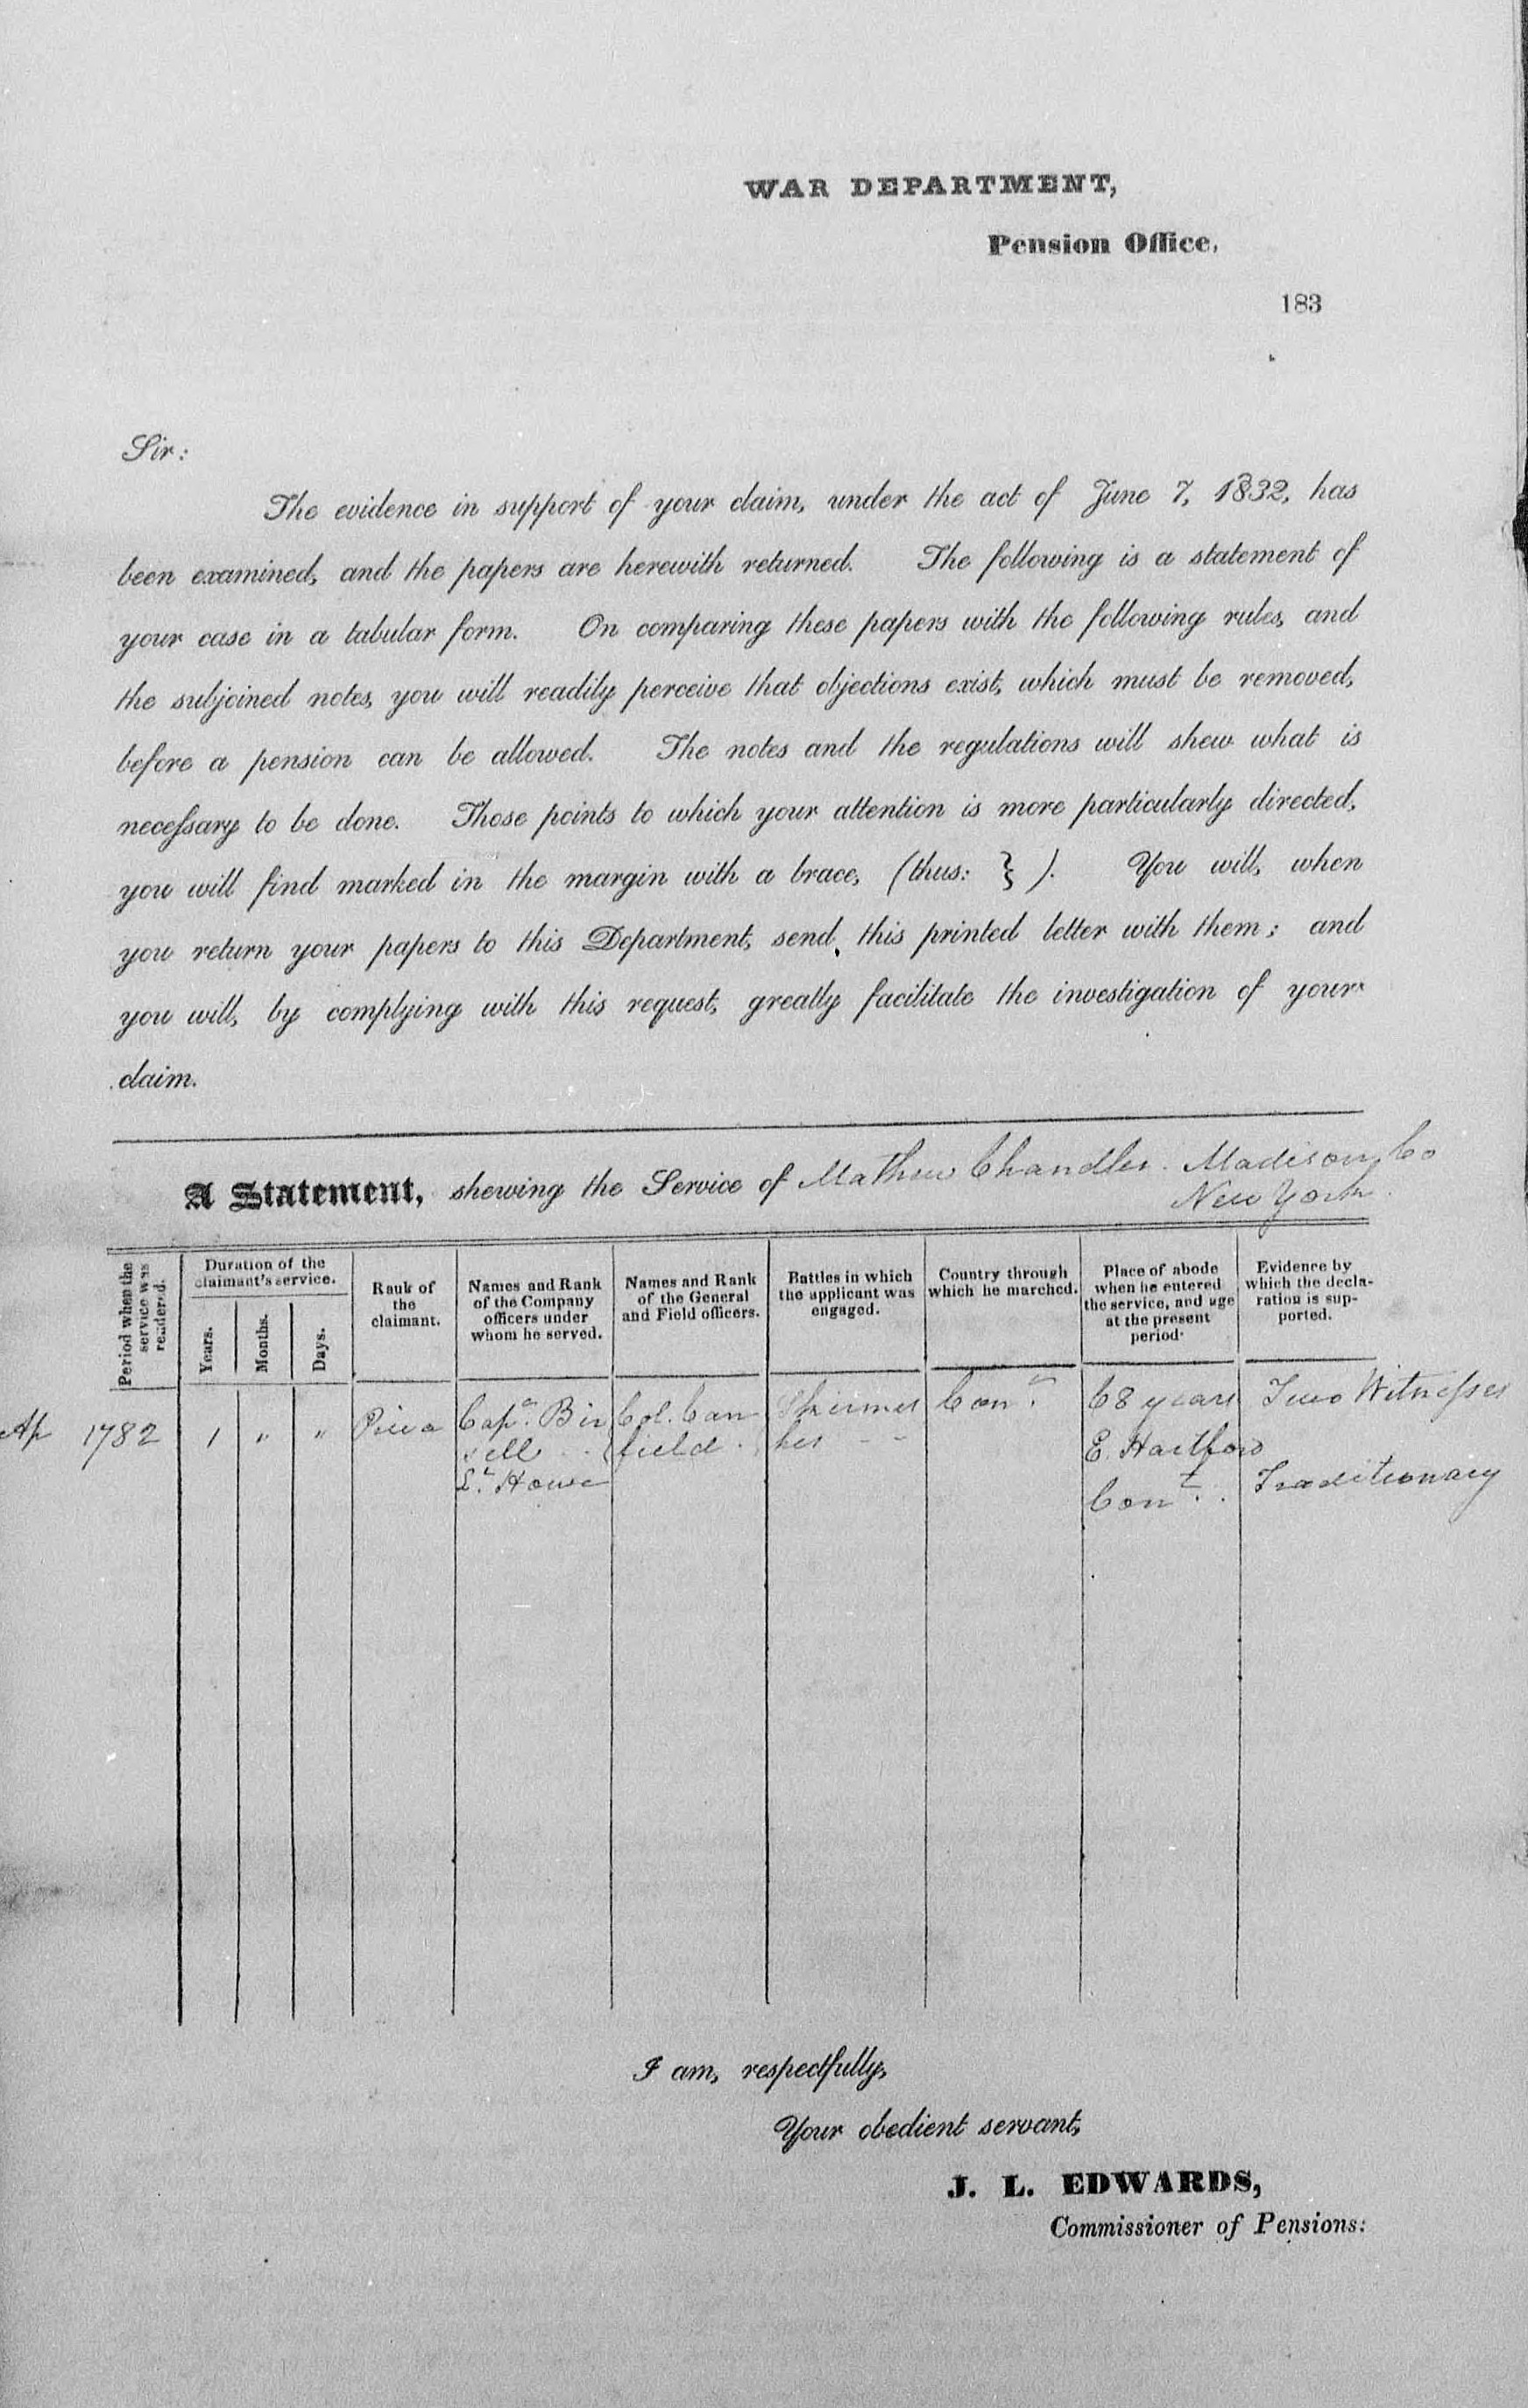 WAR DEPARTMENT,
Pension Office,
183
Sir:
The evidence in support of your claim, under the act of June 7, 1832, has
been examined, and the papers are herewith returned. The following is a statement of
your case in a tabular form. On comparing these papers with the following rules, and
the subjoined notes, you will readily perceive that objections exist, which must be removed,
before a pension can be allowed. The notes and the regulations will shew what is
necessary to be done. Those points to which your attention is more particularly directed,
you will find marked in the margin with a brace, (thus: } ). You will, when
you return your papers to this Department, send, this printed letter with them; and
you will, by complying with this request, greatly facilitate the investigation of your
claim.
A Statement, shewing the Service of Mathew Chandler. Madison Co
New York.
Period when the
service was
rendered.
Duration of the
claimant's service.
Years.
Months.
Days.
Rank of
the
claimant.
Names and Rank
of the Company
officers under
whom he served.
Names and Rank
of the General
and Field officers.
Battles in which
the applicant was
engaged.
Country through
which he marched.
Place of abode
when he entered
the service, and age
at the present
period.
Evidence by
which the decla-
ration is sup-
ported.
Ap 1782
1
"
"
Priva
Capn. Bis
sell
Lt. Howe
Col. Can
field.
Skirmis
hes - -
Con t.
68 years
E. Hartford
Cont..
Two Witnesses
Traditionary
I am, respectfully,
Your obedient servant,
J. L. EDWARDS,
Commissioner of Pensions: